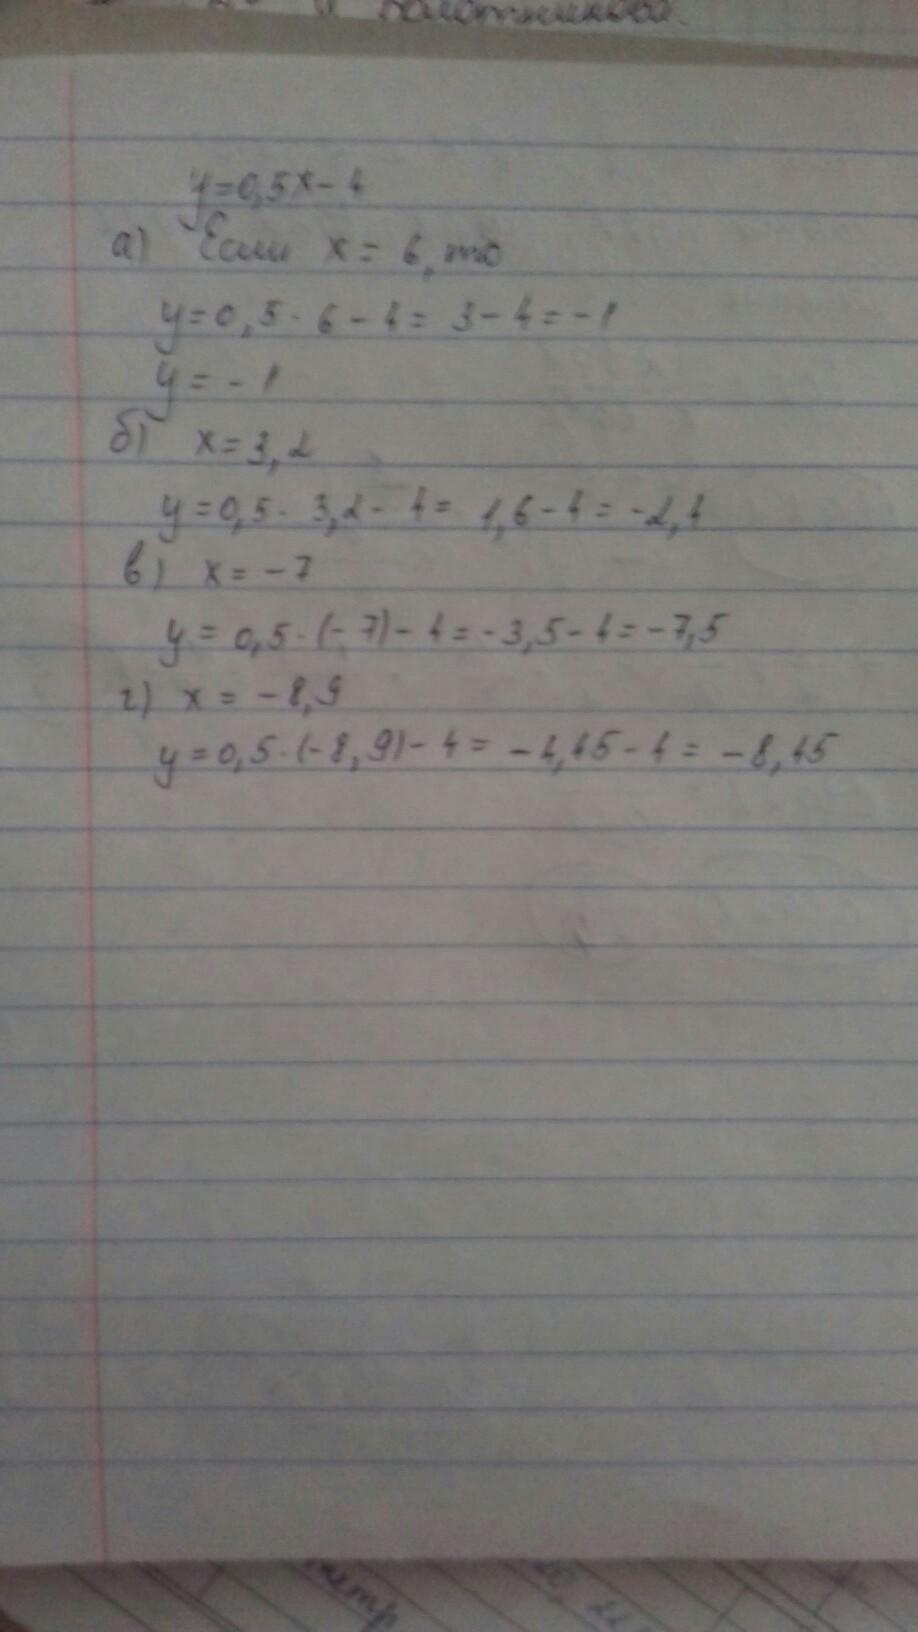 y=0,5x-4
а) Если x = 6, то
y=0,5·6-4= 3-4=-1
y=-1
б) x=3,2
y=0,5·3,2-4= 1,6-4=-2,4
в) x=-7
y=0,5·(-7)-4=-3,5-4=-7,5
г) x=-8,9
y=0,5·(-8,9)-4= -4,45-4= -8,45